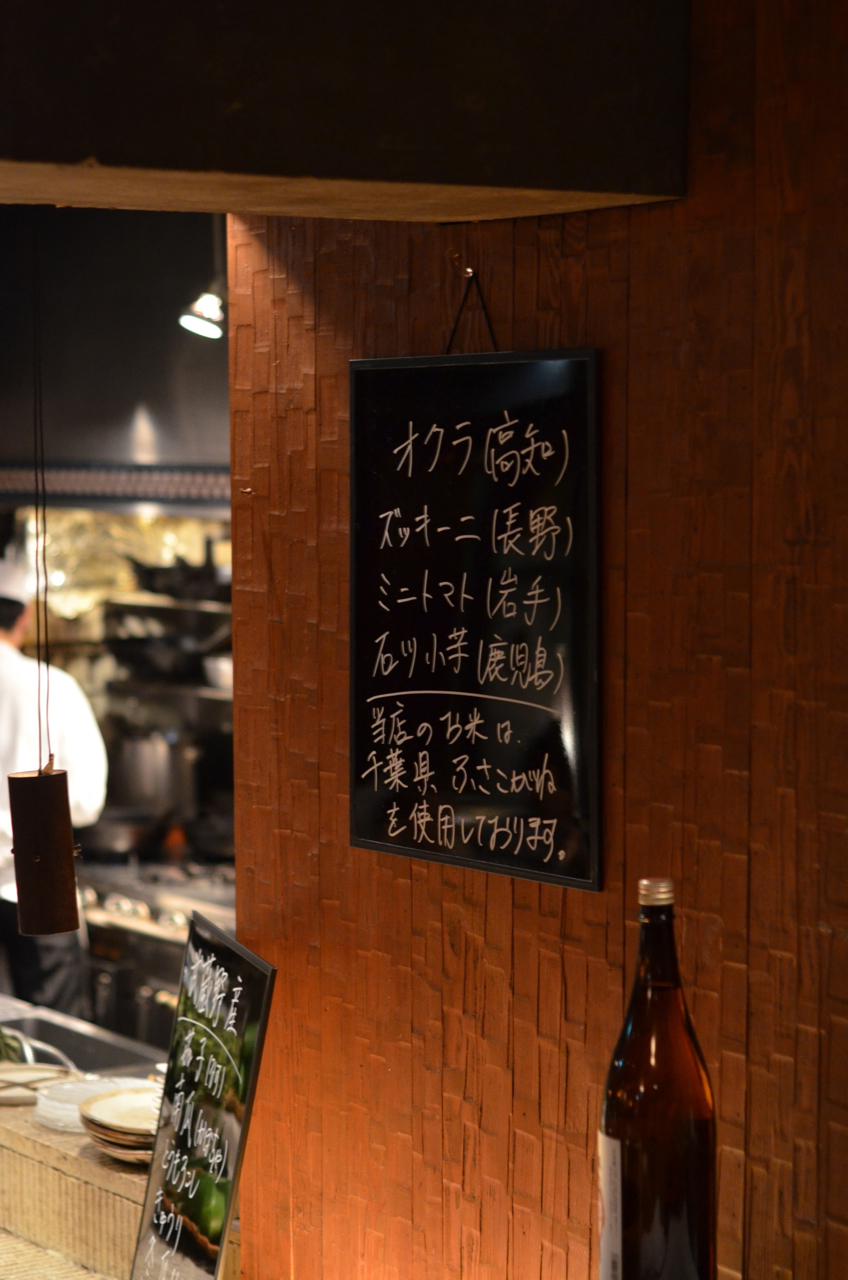 オクラ(高知)
ズッキーニ(長野)
ミニトマト(岩手)
石川小芋(鹿児島)
当店のお米は、
千葉県、ふさこがね
を使用しております。
武蔵野産
茄子
南瓜
とうもろこし
きゅうり